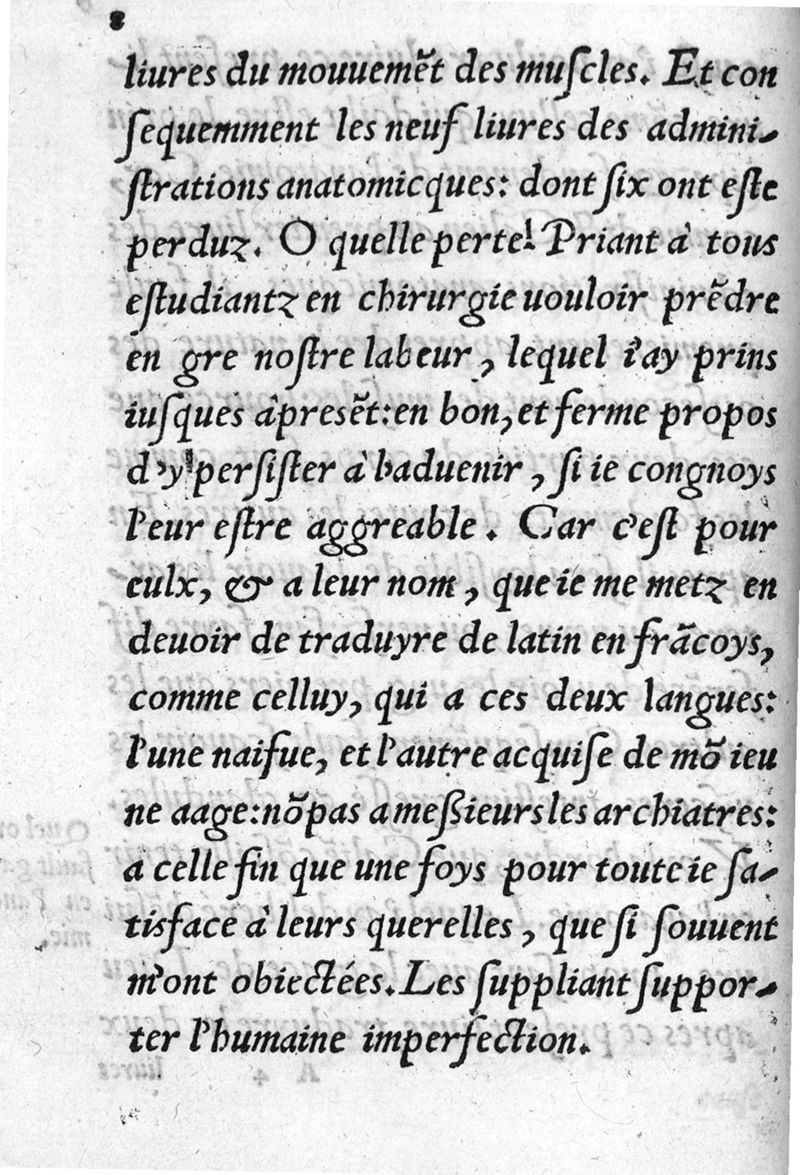 8
liures du mouuemẽt des muſcles. Et con
ſequemment les neuf liures des admini-
ſtrations anatomicques: dont ſix ont eſte
perduz. O quelle perte! Priant à tous
eſtudiantz en chirurgie uouloir prẽdre
en gre noſtre labeur, lequel i'ay prins
iuſques àpresẽt: en bon, et ferme propos
d'y perſiſter à l'aduenir, ſi ie congnoys
l'eur eſtre aggreable. Car c'eſt pour
eulx, & a leur nom, que ie me metz en
deuoir de traduyre de latin en frãcoys,
comme celluy, qui a ces deux langues:
l'une naifue, et l'autre acquiſe de mõ ieu
ne aage: nõ pas a meſsieurs les archiatres:
a celle fin que une foys pour toute ie ſa-
tisface à leurs querelles, que ſi ſouuent
m'ont obiectées. Les ſuppliant ſuppor-
ter l'humaine imperfection.